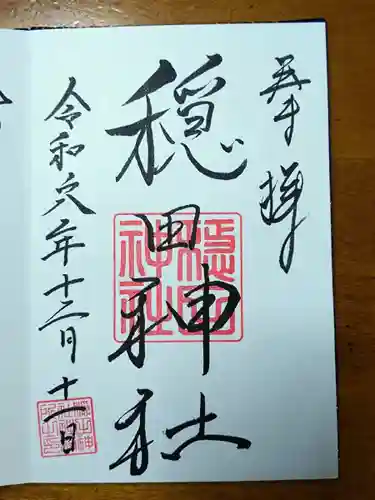 奉拝
穏田神社
令和六年十二月十一日
穏田神社